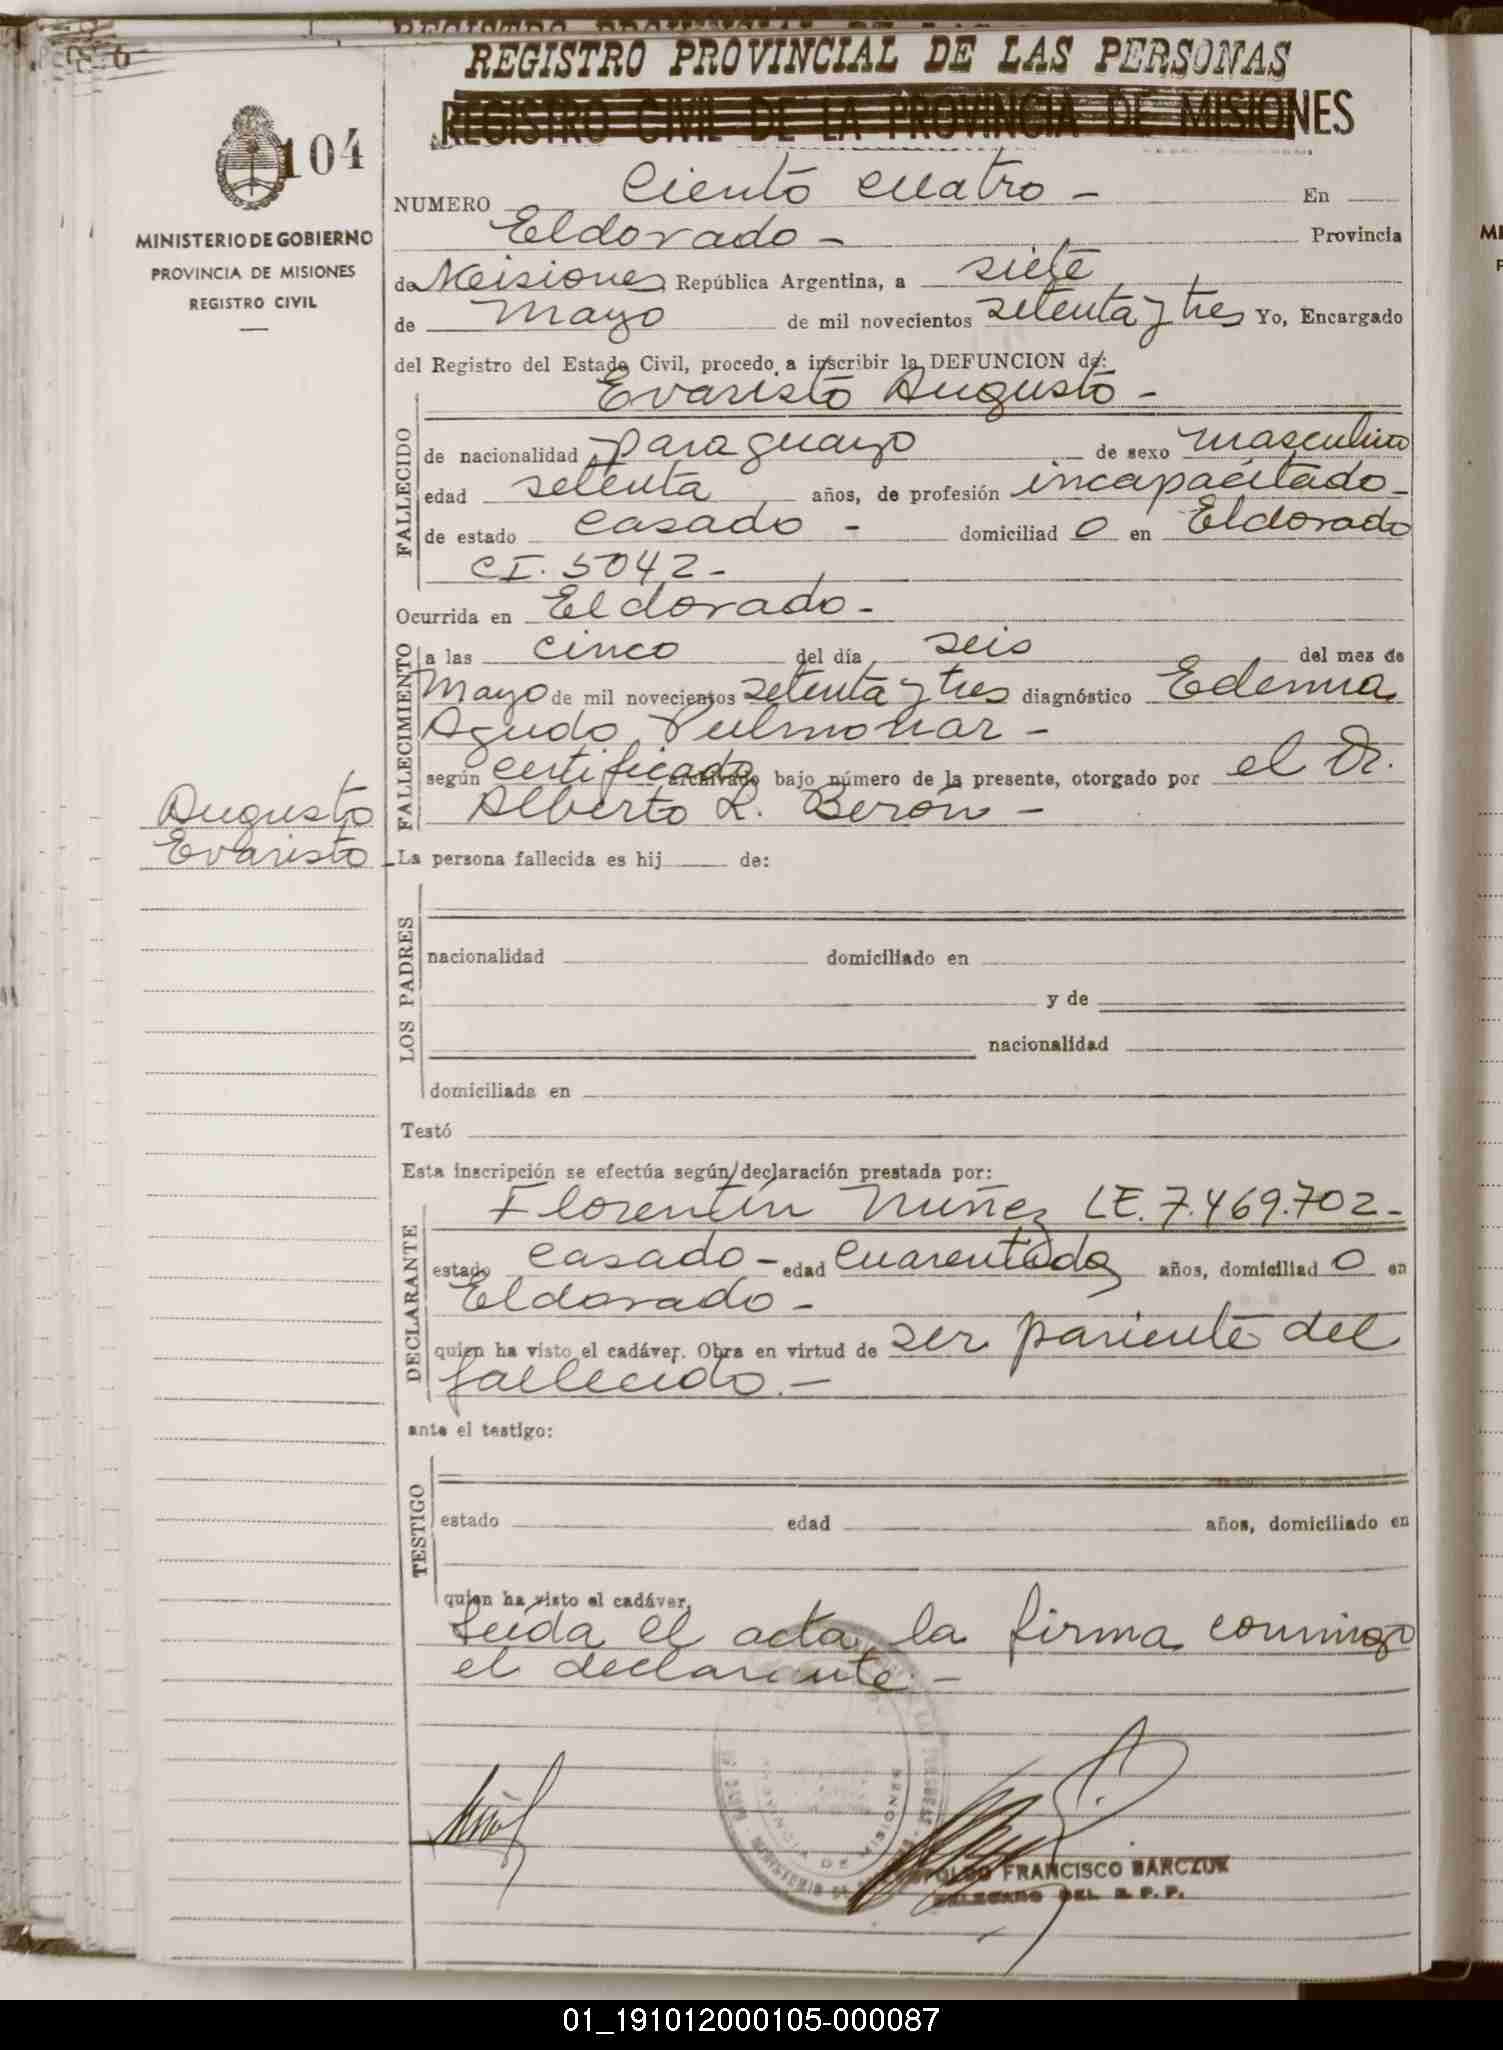 REGISTRO PROVINCIAL DE LAS PERSONAS
REGISTRO CIVIL DE LA PROVINCIA DE MISIONES
104
MINISTERIO DE GOBIERNO
PROVINCIA DE MISIONES
REGISTRO CIVIL
NUMERO Ciento cuatro - En
Eldorado - Provincia
de Misiones República Argentina, a siete
de Mayo de mil novecientos setenta y tres Yo, Encargado
del Registro del Estado Civil, procedo a inscribir la DEFUNCION de:
Evaristo Augusto -
FALLECIDO
de nacionalidad paraguayo de sexo masculino
edad setenta años, de profesión incapacitado -
de estado casado - domiciliado en Eldorado
CI. 5042 -
Ocurrida en Eldorado -
FALLECIMIENTO
a las cinco del día seis del mes de
Mayo de mil novecientos setenta y tres diagnóstico Edema
Agudo Pulmonar -
según certificado archivado bajo número de la presente, otorgado por el Dr.
Alberto L. Berón -
Augusto
Evaristo -
La persona fallecida es hij de:
LOS PADRES
nacionalidad domiciliado en
y de
nacionalidad
domiciliada en
Testó
Esta inscripción se efectúa según declaración prestada por:
DECLARANTE
Florentín Nuñez LE. 7.469.702 -
estado casado - edad cuarentados años, domiciliado en
Eldorado -
quien ha visto el cadáver. Obra en virtud de ser pariente del
fallecido. -
ante el testigo:
TESTIGO
estado edad años, domiciliado en
quien ha visto el cadáver,
Leída el acta la firma conmigo
el declarante. -
PROVINCIA DE MISIONES
FRANCISCO BARCZUK
DELEGADO DEL R. P. P.
01_191012000105-000087